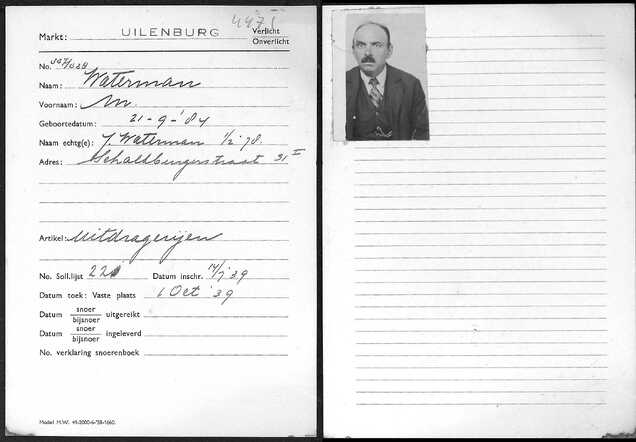 4475
Markt: UILENBURG Verlicht
Onverlicht
No.
Naam: Waterman
Voornaam: M.
Geboortedatum: 21-9-'84
Naam echtg(e): J. Waterman 1/2 78.
Adres: 31 II
Artikel: Uitdragerijen
No. Soll.lijst 22 Datum inschr. 14/7 '39
Datum toek: Vaste plaats 1 Oct '39
Datum snoer
bijsnoer uitgereikt
Datum snoer
bijsnoer ingeleverd
No. verklaring snoerenboek
Model M.W. 49-2000-6-'38-1660.